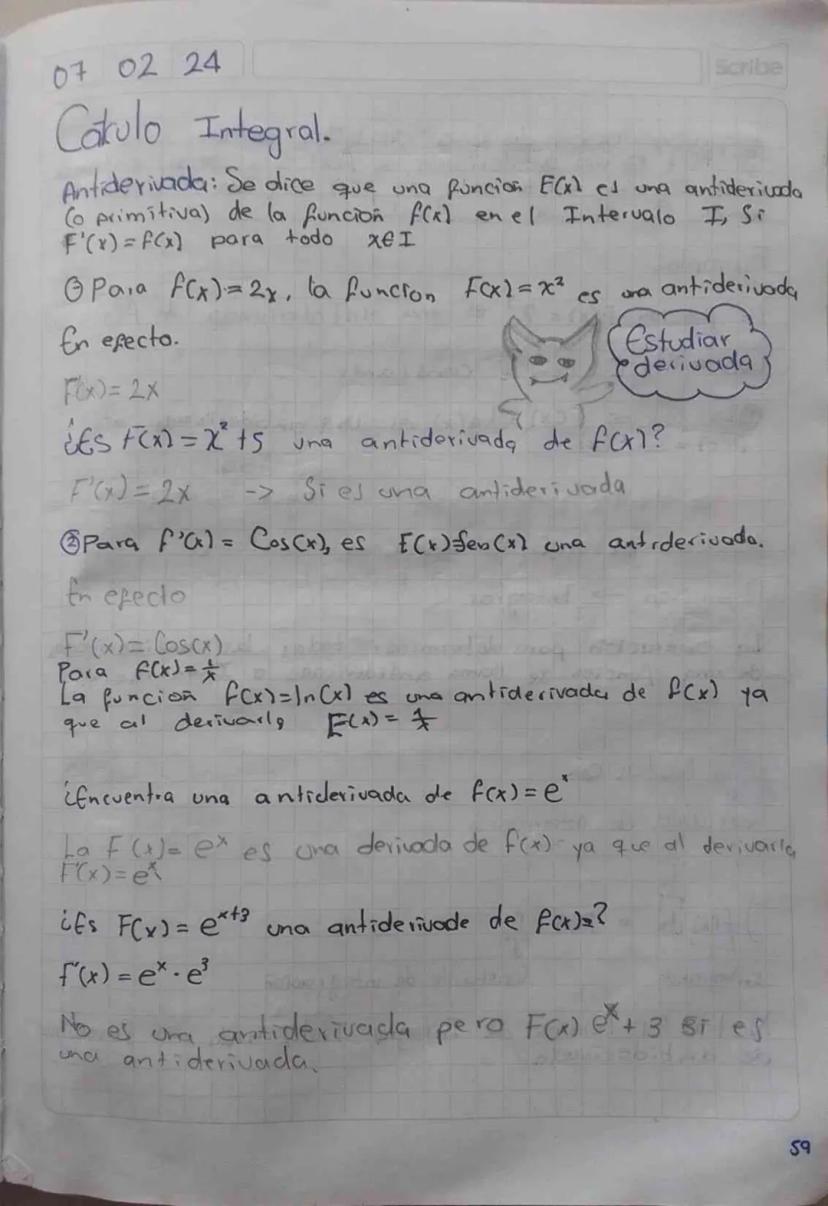 07 02 24
Scribe
Cálculo Integral.
Antiderivada: Se dice que una función F(x) es una antiderivada
(o primitiva) de la función f(x) en el Intervalo I, Si
F'(x) = f(x) para todo x∈I
① Para f(x) = 2x, la funcion F(x) = x² es una antiderivada
En efecto.
Estudiar
derivada
F'(x) = 2x
¿Es F(x) = x² + 5 una antiderivada de f(x)?
F'(x) = 2x -> Si es una antiderivada
② Para f'(x) = Cos(x), es F(x)=Sen(x) una antiderivada.
En efecto
F'(x) = Cos(x)
Para f(x) = 1/x
La función f(x) = ln(x) es una antiderivada de f(x) ya
que al derivarla F(x) = 1/x
¿Encuentra una antiderivada de f(x) = eˣ
La F(x) = eˣ es una derivada de f(x) ya que al derivarla
F'(x) = eˣ
¿Es F(x) = eˣ⁺³ una antiderivade de f(x)=?
f'(x) = eˣ · e³
No es una antiderivada pero F(x) eˣ + 3 si es
una antiderivada.
59